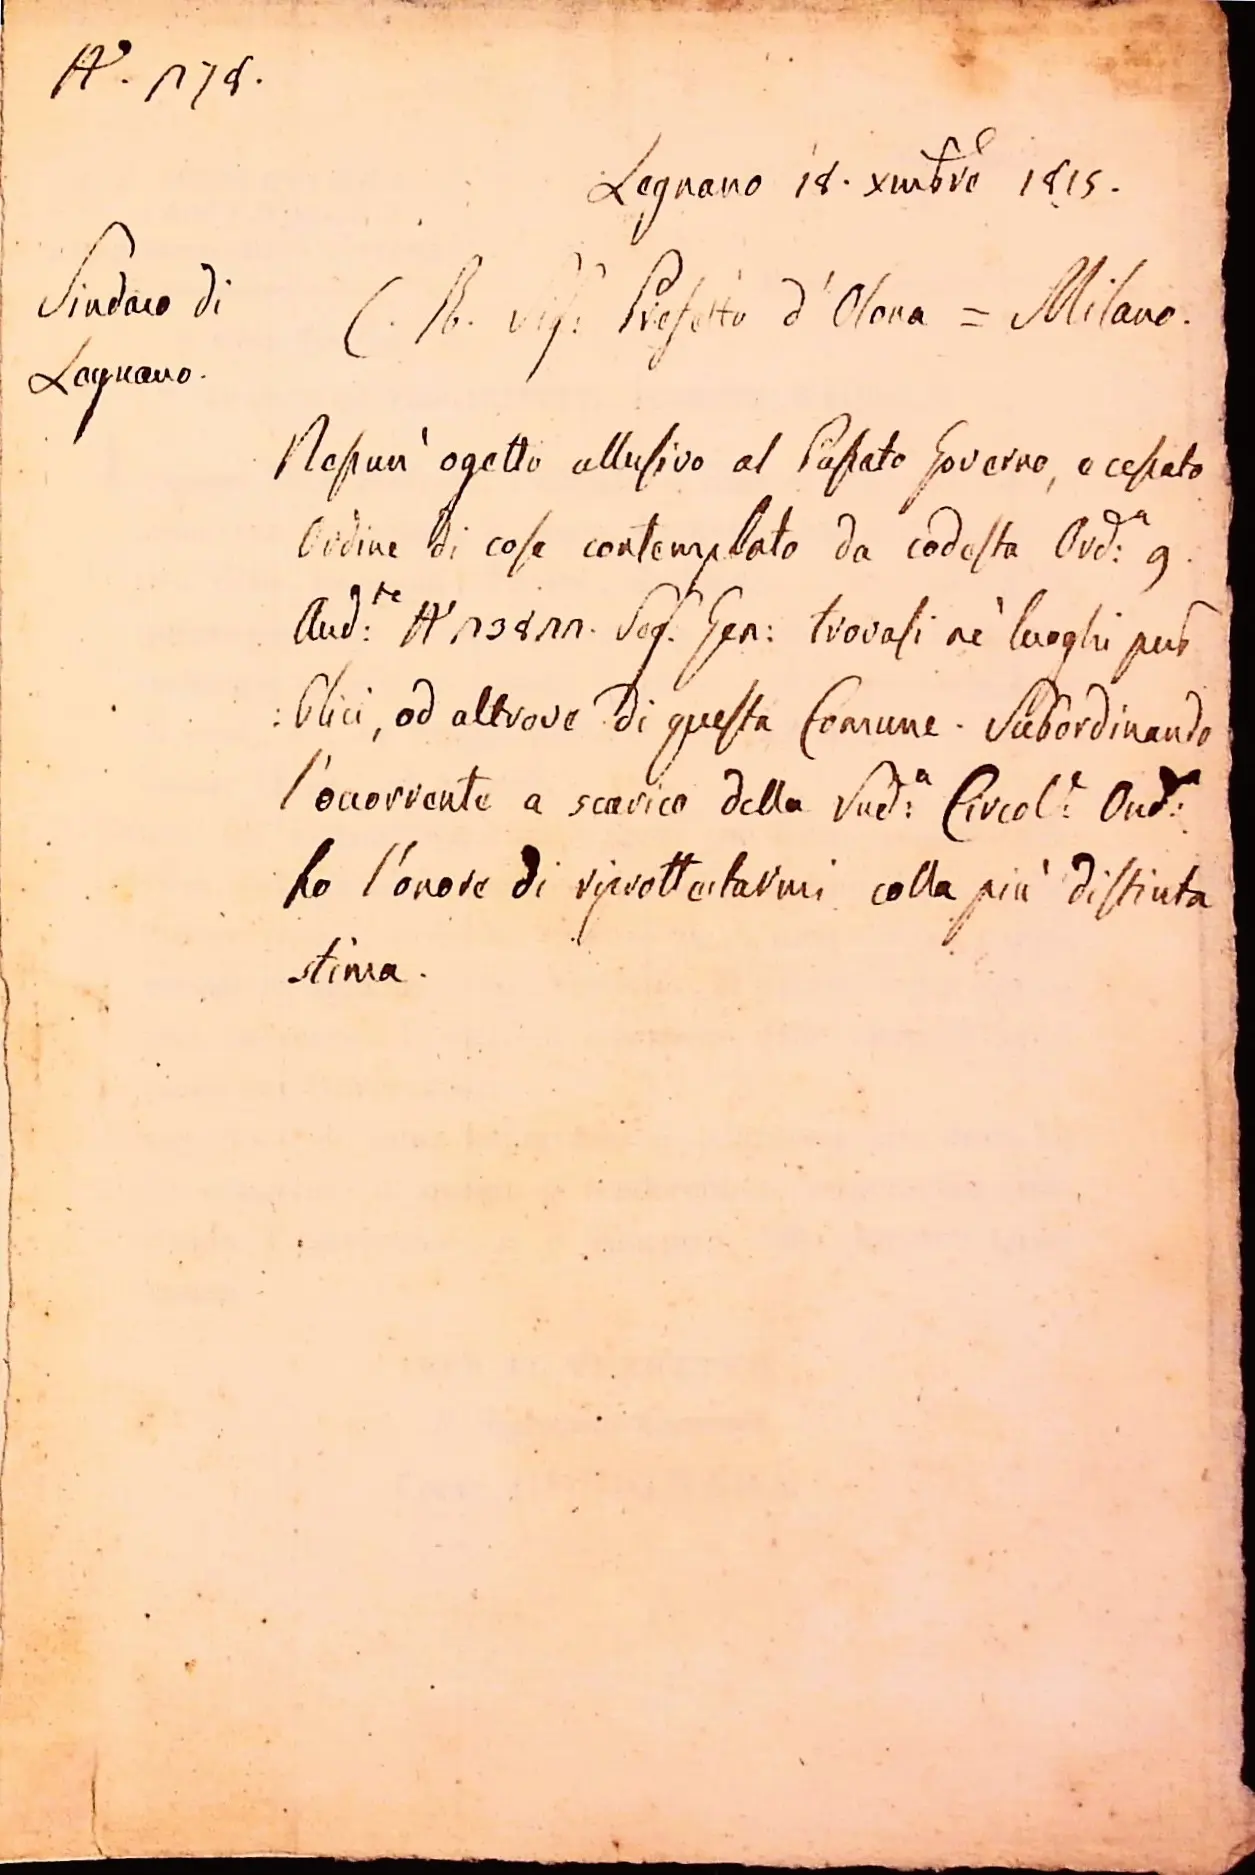 N.° 178.
Legnano 18. Xmbre 1815.
Sindaco di
Legnano.
C. R. Sig.r Prefetto d'Olona = Milano.
Nessun' ogetto allusivo al Passato Governo, e cessato
Ordine di cose contemplato da codesta Ord:a 9.
And:te N.° 13811. Seg. Gen: trovasi ne' luoghi pub
:blici, od altrove di questa Comune. Subordinando
l'occorrente a scarico della Sud:a Circol:e Ord:a
ho l'onore di riprottestarmi colla più distinta
stima.